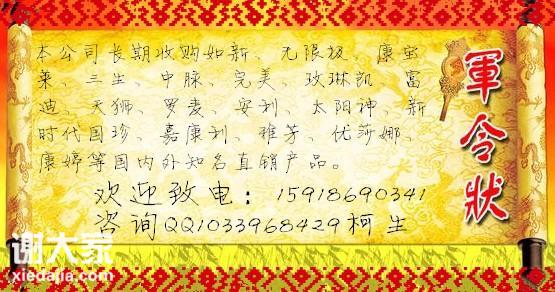 本公司长期收购如新、无限极、康宝
莱、三生、中脉、完美、玫琳凯、富
迪、天狮、罗麦、安利、太阳神、新
时代国珍、嘉康利、雅芳、优莎娜、
康婷等国内外知名直销产品。
欢迎致电：15918690341
咨询QQ1033968429柯生
軍令狀
谢大家
xiedajia.com